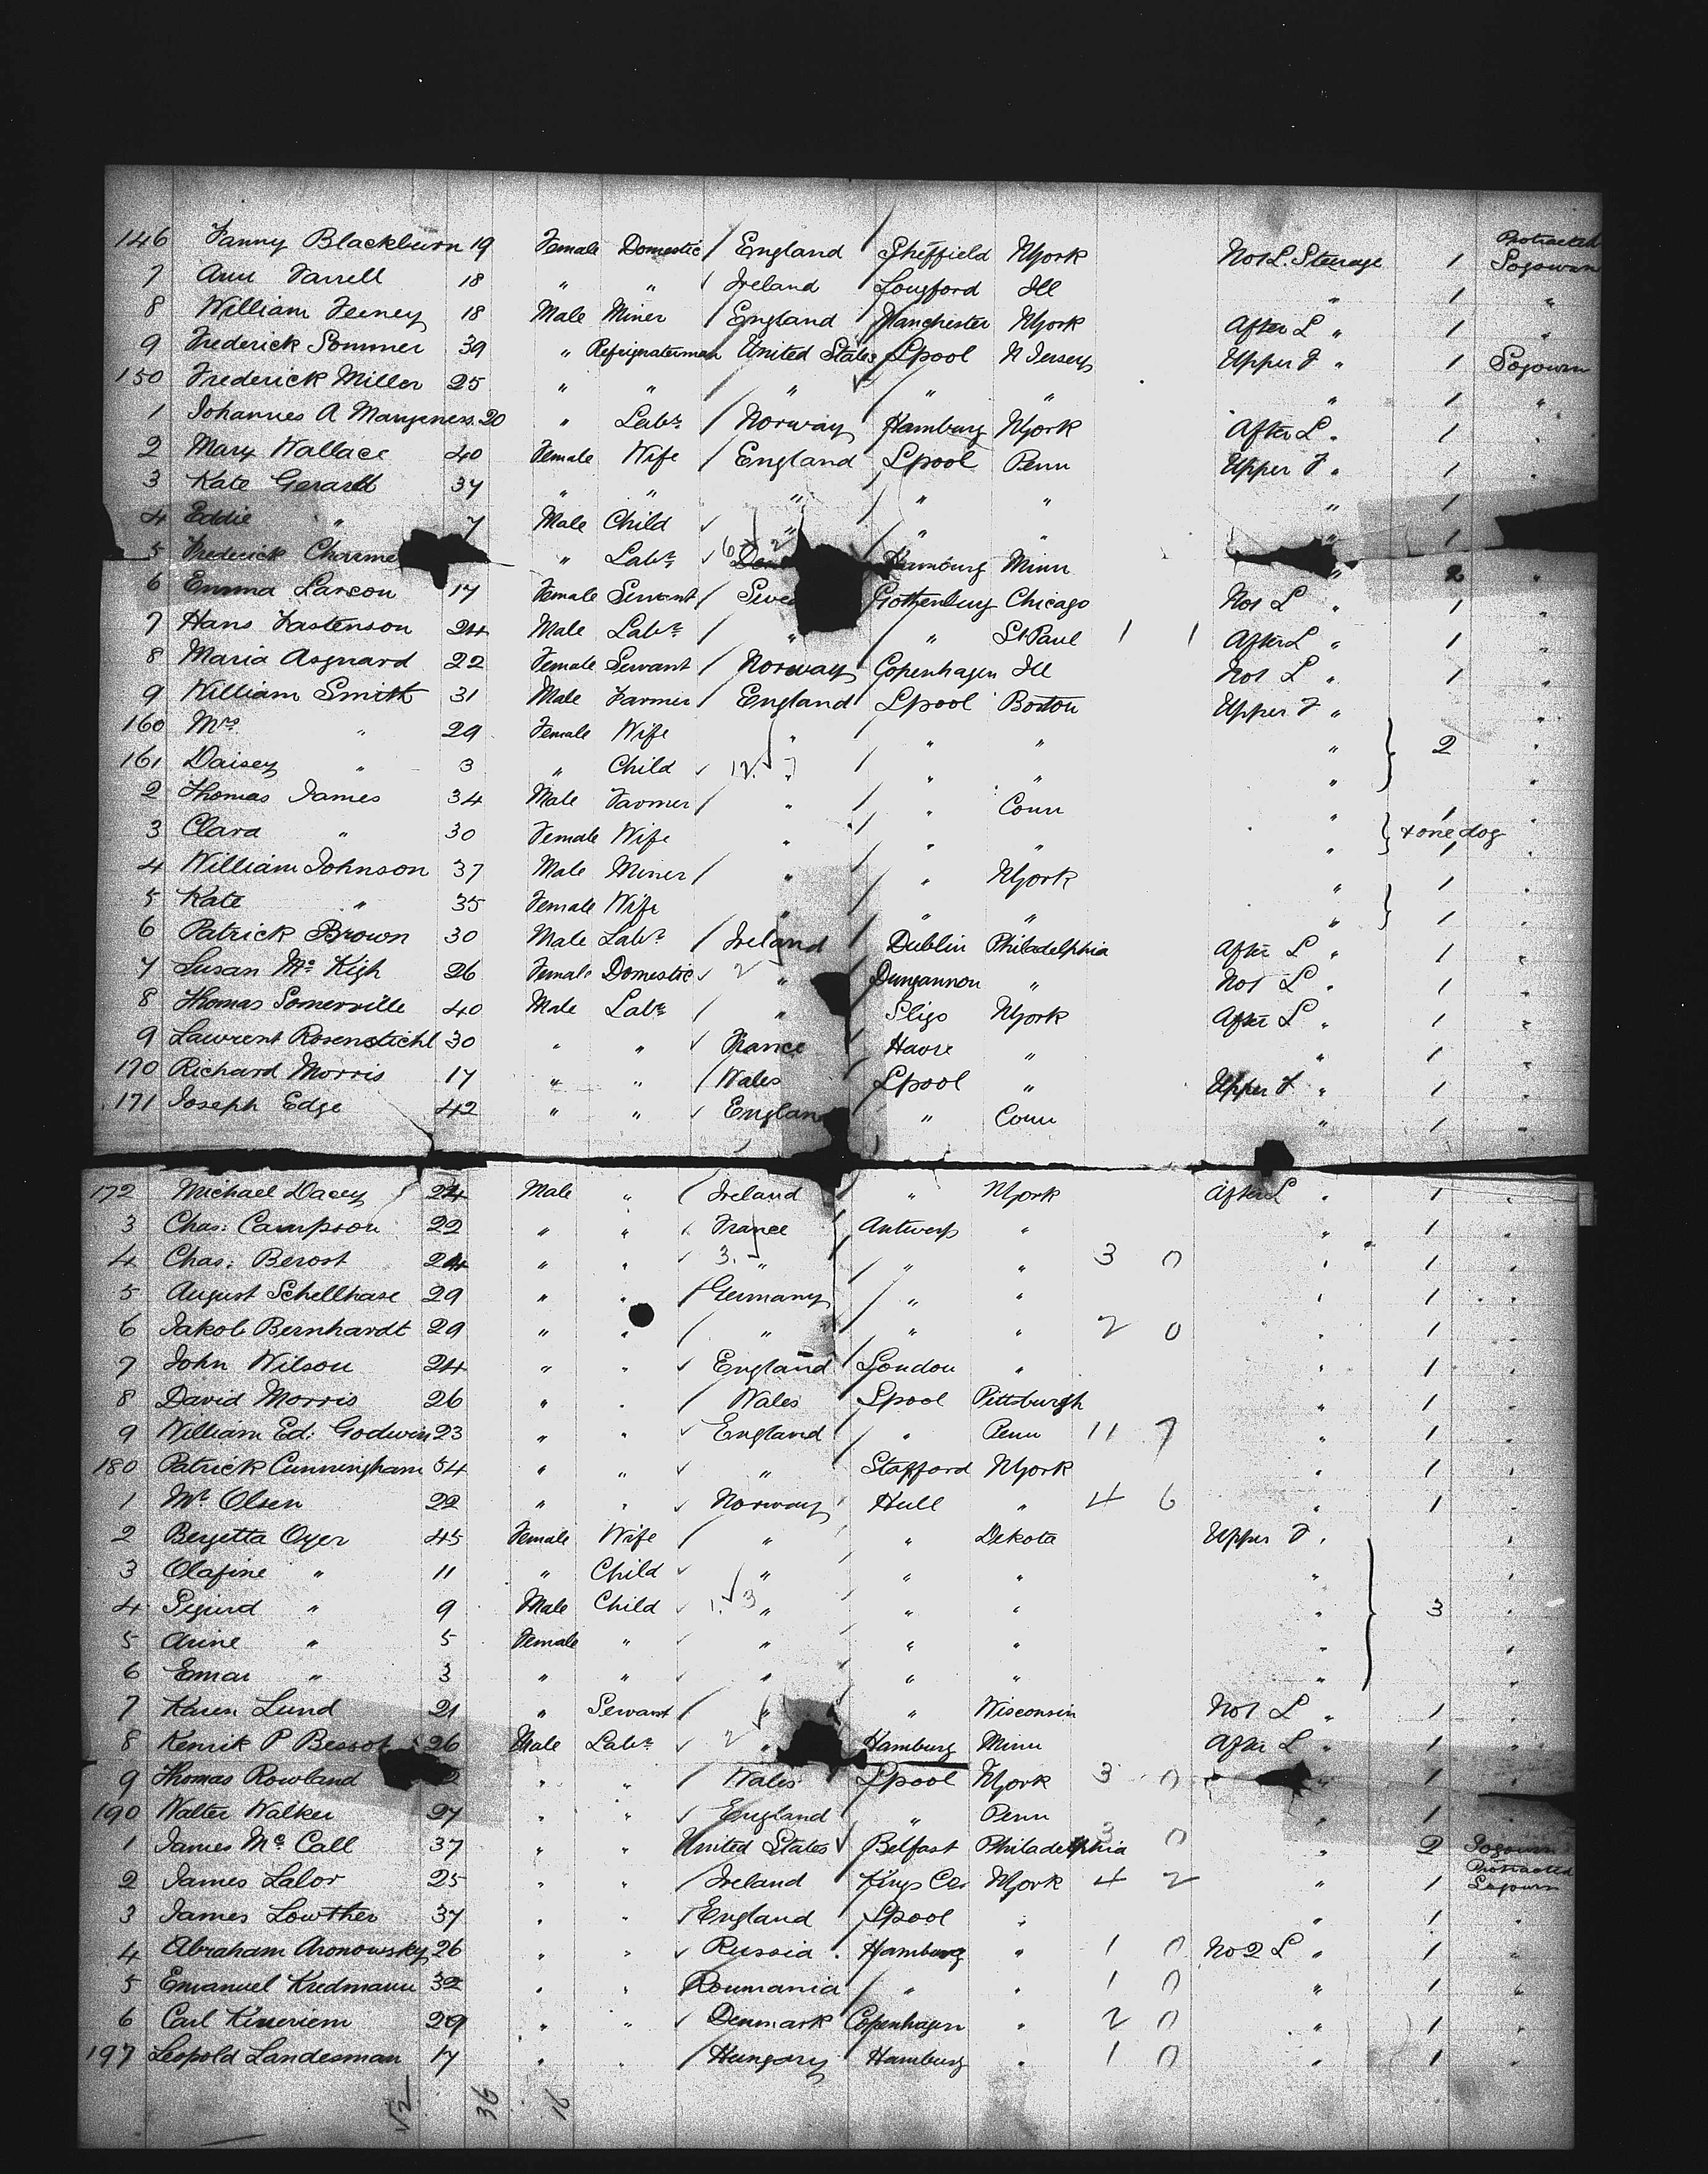 146 Fanny Blackburn 19 Female Domestic England Sheffield NYork No1 L. Steerage 1 Protracted Sogown
7 Ann Farrell 18 " " Ireland Longford Ill " 1 "
8 William Feeney 18 Male Miner England Manchester NYork After L " 1 "
9 Frederick Sommer 39 " Refrigeraterman United States Lpool N Jersey Upper F " 1 Sogown
150 Frederick Miller 25 " " " " " " 1 "
1 Johannes A 20 " Labr Norway Hamburg NYork After L " 1 "
2 Mary Wallace 40 Female Wife England Lpool Penn Upper F " 1 "
3 Kate Gerard 37 " " " " " " 1
4 Eddie " 7 Male Child " " " " 1
5 Frederick " Labr 6 2 Hamburg Minn " 2 "
6 Emma Larson 17 Female Servant Gothenburg Chicago No1 L " 1 "
7 Hans Kastenson 24 Male Labr " " St Paul 1 1 After L " 1 "
8 Maria Asgnard 22 Female Servant Norway Copenhagen Ill No1 L " 1 "
9 William Smith 31 Male Farmer England Lpool Boston Upper F " "
160 Mrs " 29 Female Wife " " " " 2 "
161 Daisey " 3 " Child 12 " " " " "
2 Thomas James 34 Male Farmer " " Conn " 1 "
3 Clara " 30 Female Wife " " " " + one dog 1 "
4 William Johnson 37 Male Miner " " NYork " 1 "
5 Kate " 35 Female Wife " " " " 1 "
6 Patrick Brown 30 Male Labr Ireland Dublin Philadelphia After L " 1 "
7 Susan Mc Kigh 26 Female Domestic 2 " Dungannon " No1 L " 1 "
8 Thomas Somerville 40 Male Labr " Sligo NYork After L " 1 "
9 Lawrent Rosenstichl 30 " " France Havre " " 1 "
170 Richard Morris 17 " " Wales Lpool " Upper F " 1 "
171 Joseph Edge 42 " " England " Conn " 1 "
172 Michael Dacey 24 Male " Ireland " NYork After L " 1 "
3 Chas: Campson 22 " " France Antwerp " " 1 "
4 Chas: Berost 24 " " 3. " " " 3 0 " 1 "
5 August Schellhase 29 " " Germany " " " 1 "
6 Jakob Bernhardt 29 " " " " " 2 0 " 1 "
7 John Wilson 24 " " England London " " 1 "
8 David Morris 26 " " Wales Lpool Pittsburgh " 1 "
9 William Ed: Godwin 23 " " England " Penn 11 7 " 1 "
180 Patrick Cunningham 54 " " " Stafford NYork " 1 "
1 Mr Olsen 22 " " Norway Hull " 4 6 " 1 "
2 Bergetta Oyer 45 Female Wife " " Dekota Upper F " "
3 Olafine " 11 " Child " " " " "
4 Sigurd " 9 Male Child 1. 3 " " " " 3 "
5 Arine " 5 Female " " " " " "
6 Emar " 3 " " " " " " "
7 Karen Lund 21 " Servant " " Wisconsin No1 L " 1 "
8 Kenrik P Bessot 26 Male Labr 2 " Hamburg Minn After L " 1 "
9 Thomas Rowland " " Wales Lpool NYork 3 0 " 1 "
190 Walter Walker 27 " " England " Penn " 1 "
1 James Mc Call 37 " " United States Belfast Philadelphia 3 0 " 2 Sogown
2 James Lalor 25 " " Ireland Kings Co NYork 4 2 " 1 Protracted Sogown
3 James Lowther 37 " " England Lpool " " 1 "
4 Abraham Aronowsky 26 " " Russia Hamburg " 1 0 No2 L " 1 "
5 Emanuel Kredmann 32 " " Roumania " " 1 0 " 1 "
6 Carl 29 " " Denmark Copenhagen " 2 0 " 1 "
197 Leopold Landesman 17 " " Hungary Hamburg " 1 0 " 1 "
52 36 16